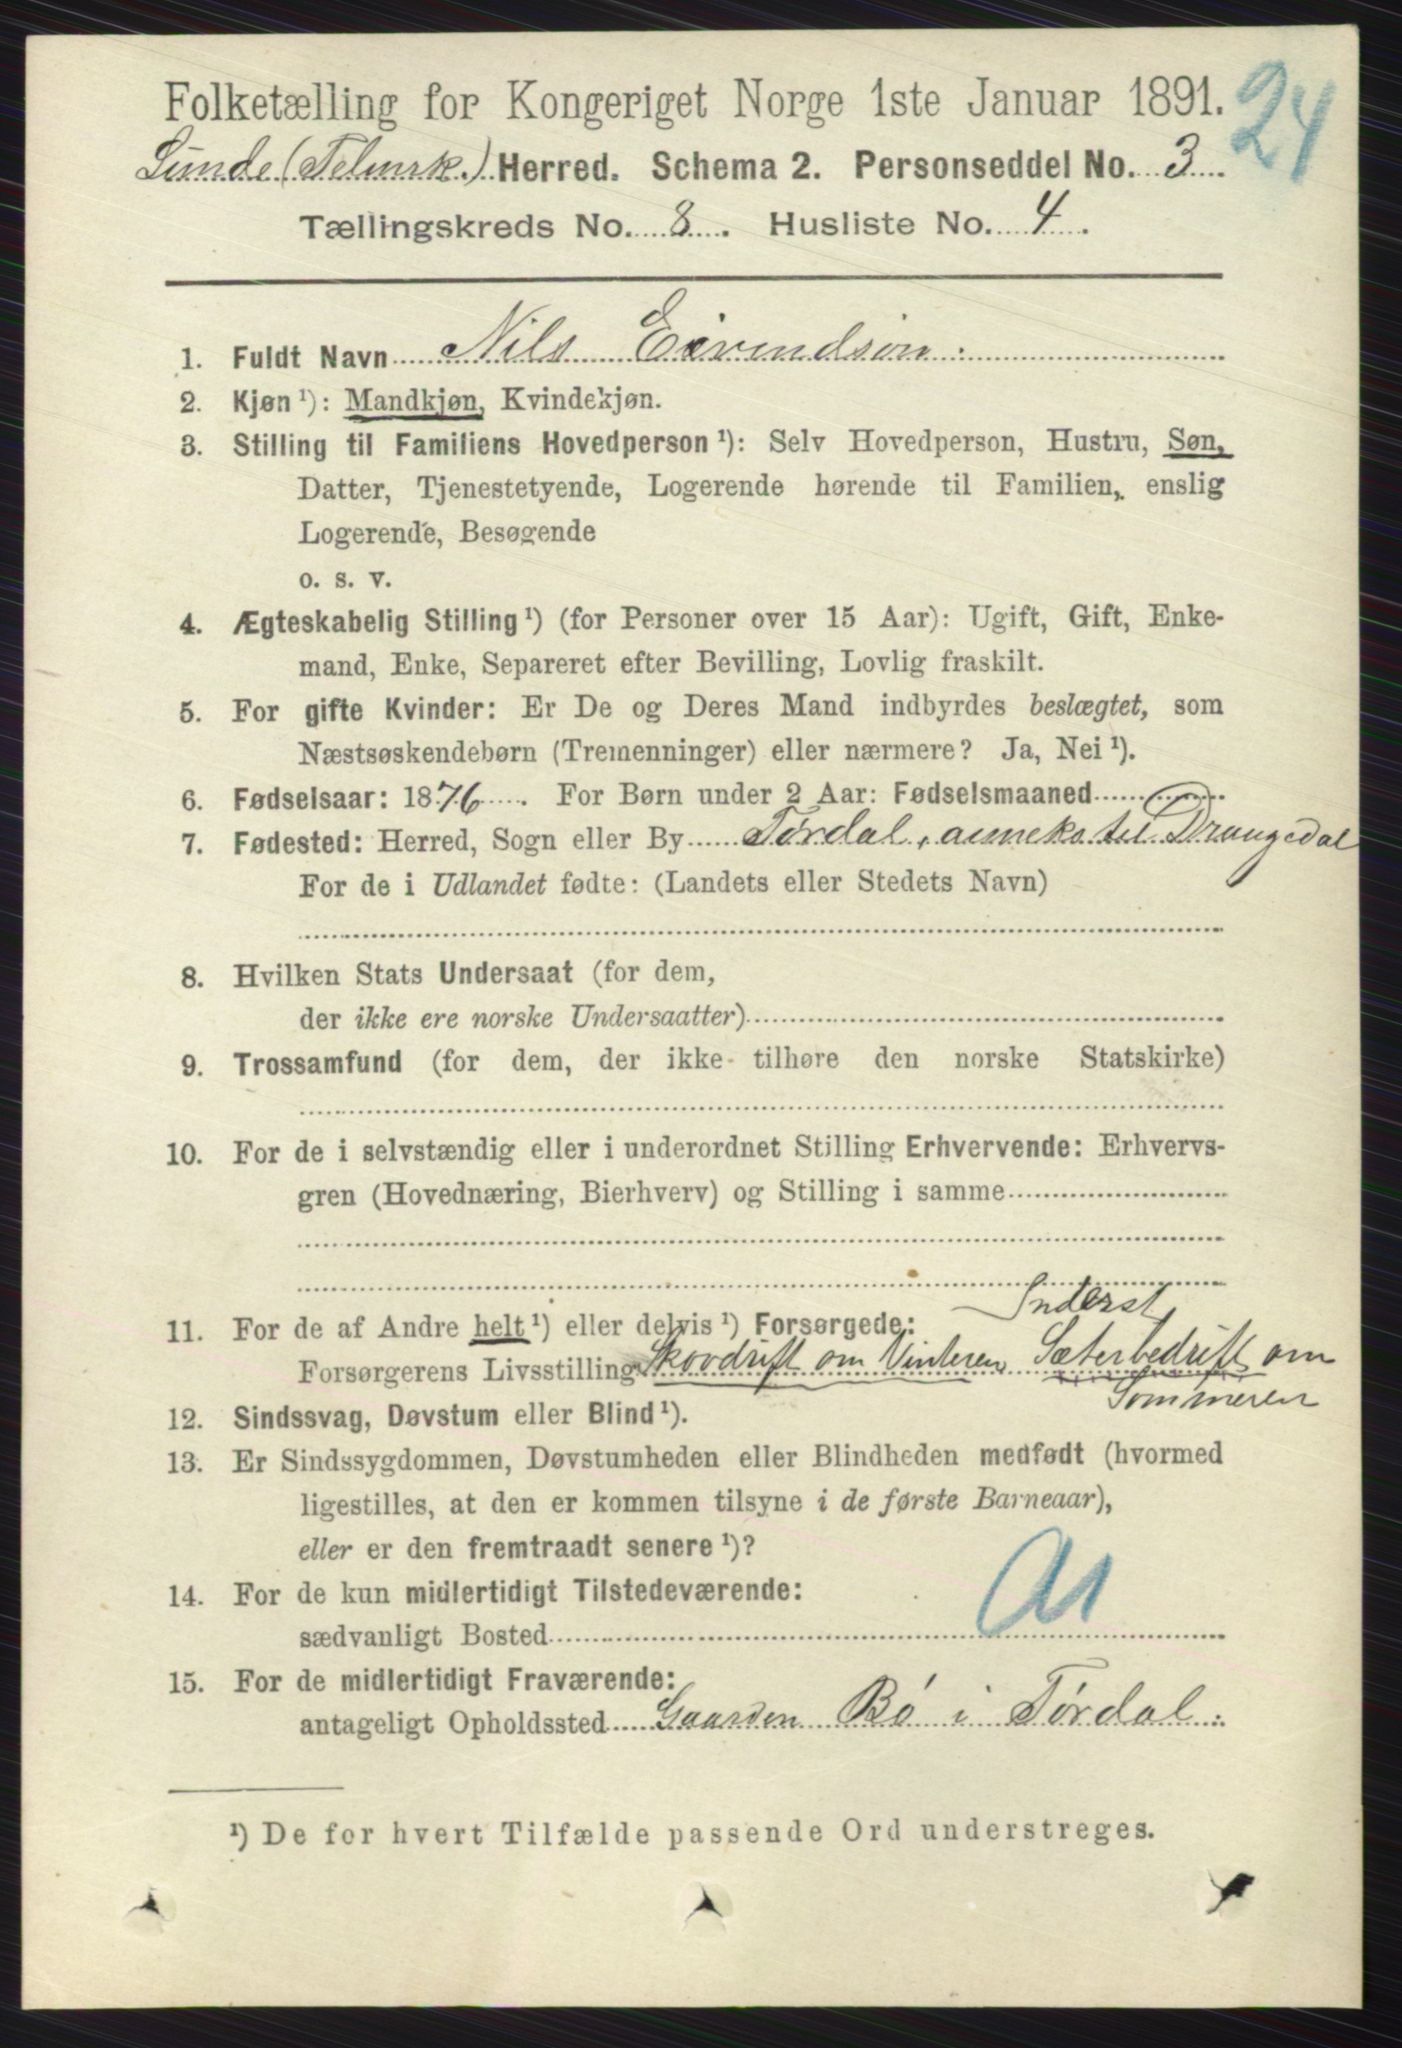 Folketælling for Kongeriget Norge 1ste Januar 1891.
24
Lunde (Telmrk.) Herred. Schema 2. Personseddel No. 3
Tællingskreds No. 8. Husliste No. 4.
1. Fuldt Navn Nils Eivendsøn.
2. Kjøn ¹): Mandkjøn, Kvindekjøn.
3. Stilling til Familiens Hovedperson ¹): Selv Hovedperson, Hustru, Søn,
Datter, Tjenestetyende, Logerende hørende til Familien, enslig
Logerende, Besøgende
o. s. v.
4. Ægteskabelig Stilling ¹) (for Personer over 15 Aar): Ugift, Gift, Enke-
mand, Enke, Separeret efter Bevilling, Lovlig fraskilt.
5. For gifte Kvinder: Er De og Deres Mand indbyrdes beslægtet, som
Næstsøskendebørn (Tremenninger) eller nærmere? Ja, Nei ¹).
6. Fødselsaar: 1876. For Børn under 2 Aar: Fødselsmaaned
7. Fødested: Herred, Sogn eller By Tørdal, anneks til Drangedal
For de i Udlandet fødte: (Landets eller Stedets Navn)
8. Hvilken Stats Undersaat (for dem,
der ikke ere norske Undersaatter)
9. Trossamfund (for dem, der ikke tilhøre den norske Statskirke)
10. For de i selvstændig eller i underordnet Stilling Erhvervende: Erhvervs-
gren (Hovednæring, Bierhverv) og Stilling i samme
Inderst,
11. For de af Andre helt ¹) eller delvis ¹) Forsørgede:
Forsørgerens Livsstilling Skovdrift om Vinteren Sæterbedrift om
Sommeren
12. Sindssvag, Døvstum eller Blind ¹).
13. Er Sindssygdommen, Døvstumheden eller Blindheden medfødt (hvormed
ligestilles, at den er kommen tilsyne i de første Barneaar),
eller er den fremtraadt senere ¹)?
14. For de kun midlertidigt Tilstedeværende:
sædvanligt Bosted
15. For de midlertidigt Fraværende:
antageligt Opholdssted Gaarden Bø i Tørdal.
¹) De for hvert Tilfælde passende Ord understreges.